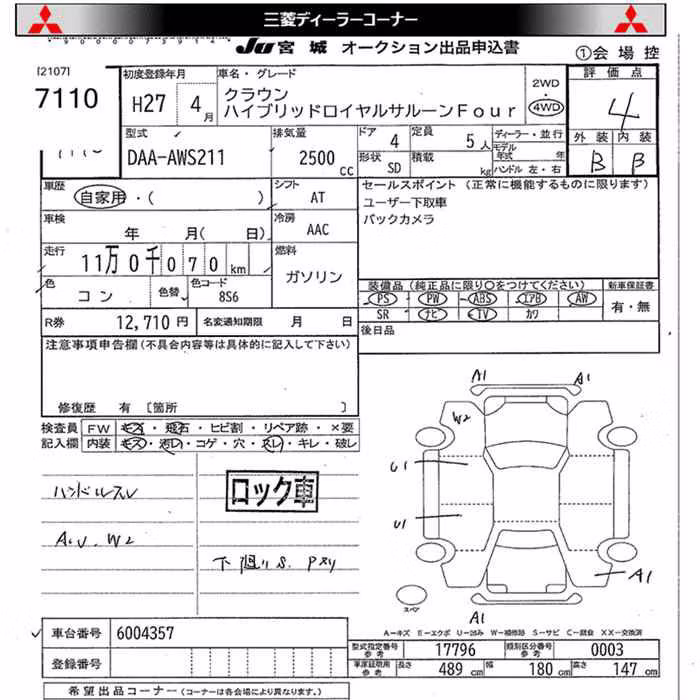 三菱ディーラーコーナー
JU 宮城 オークション出品申込書
①会場控
[2107]
7110
初度登録年月
H27 4月
車名・グレード
クラウン
ハイブリッドロイヤルサルーンFour
2WD
・
4WD
評価点
4
外装 内装
B B
型式
DAA-AWS211
排気量
2500 cc
ドア 4
定員 5人
形状 SD
積載 kg
ディーラー・並行
モデル年式 年
ハンドル 左・右
車歴
自家用・( )
シフト
AT
車検
年 月( 日)
冷房
AAC
走行
11万0千070km
燃料
ガソリン
色
コン
色替
色コード
8S6
R券 12,710円
名変通知期限 月 日
セールスポイント (正常に機能するものに限ります)
ユーザー下取車
バックカメラ
装備品 (純正品に限り○をつけてください)
新車保証書
PS PW ABS エアB AW
SR ナビ TV カワ
有・無
後日品
注意事項申告欄(不具合内容等は具体的に記入して下さい)
修復歴 有 〔箇所 〕
検査員記入欄
FW キズ・飛石・ヒビ割・リペア跡・×要
内装 キズ・汚レ・コゲ・穴・スレ・キレ・破レ
ハンドルスレ
A.U.W2
ロック車
下廻りS.Pスリ
A1
A1
W2
U1
U1
A1
A1
スペア
A―キズ E―エクボ U―凹み W―補修跡 S―サビ C―腐食 XX―交換済
車台番号 6004357
登録番号
型式指定番号 参考 17796
類別区分番号 参考 0003
車庫証明用 参考 長さ 489 cm 幅 180 cm 高さ 147 cm
希望出品コーナー (コーナーは各会場により異なります。)